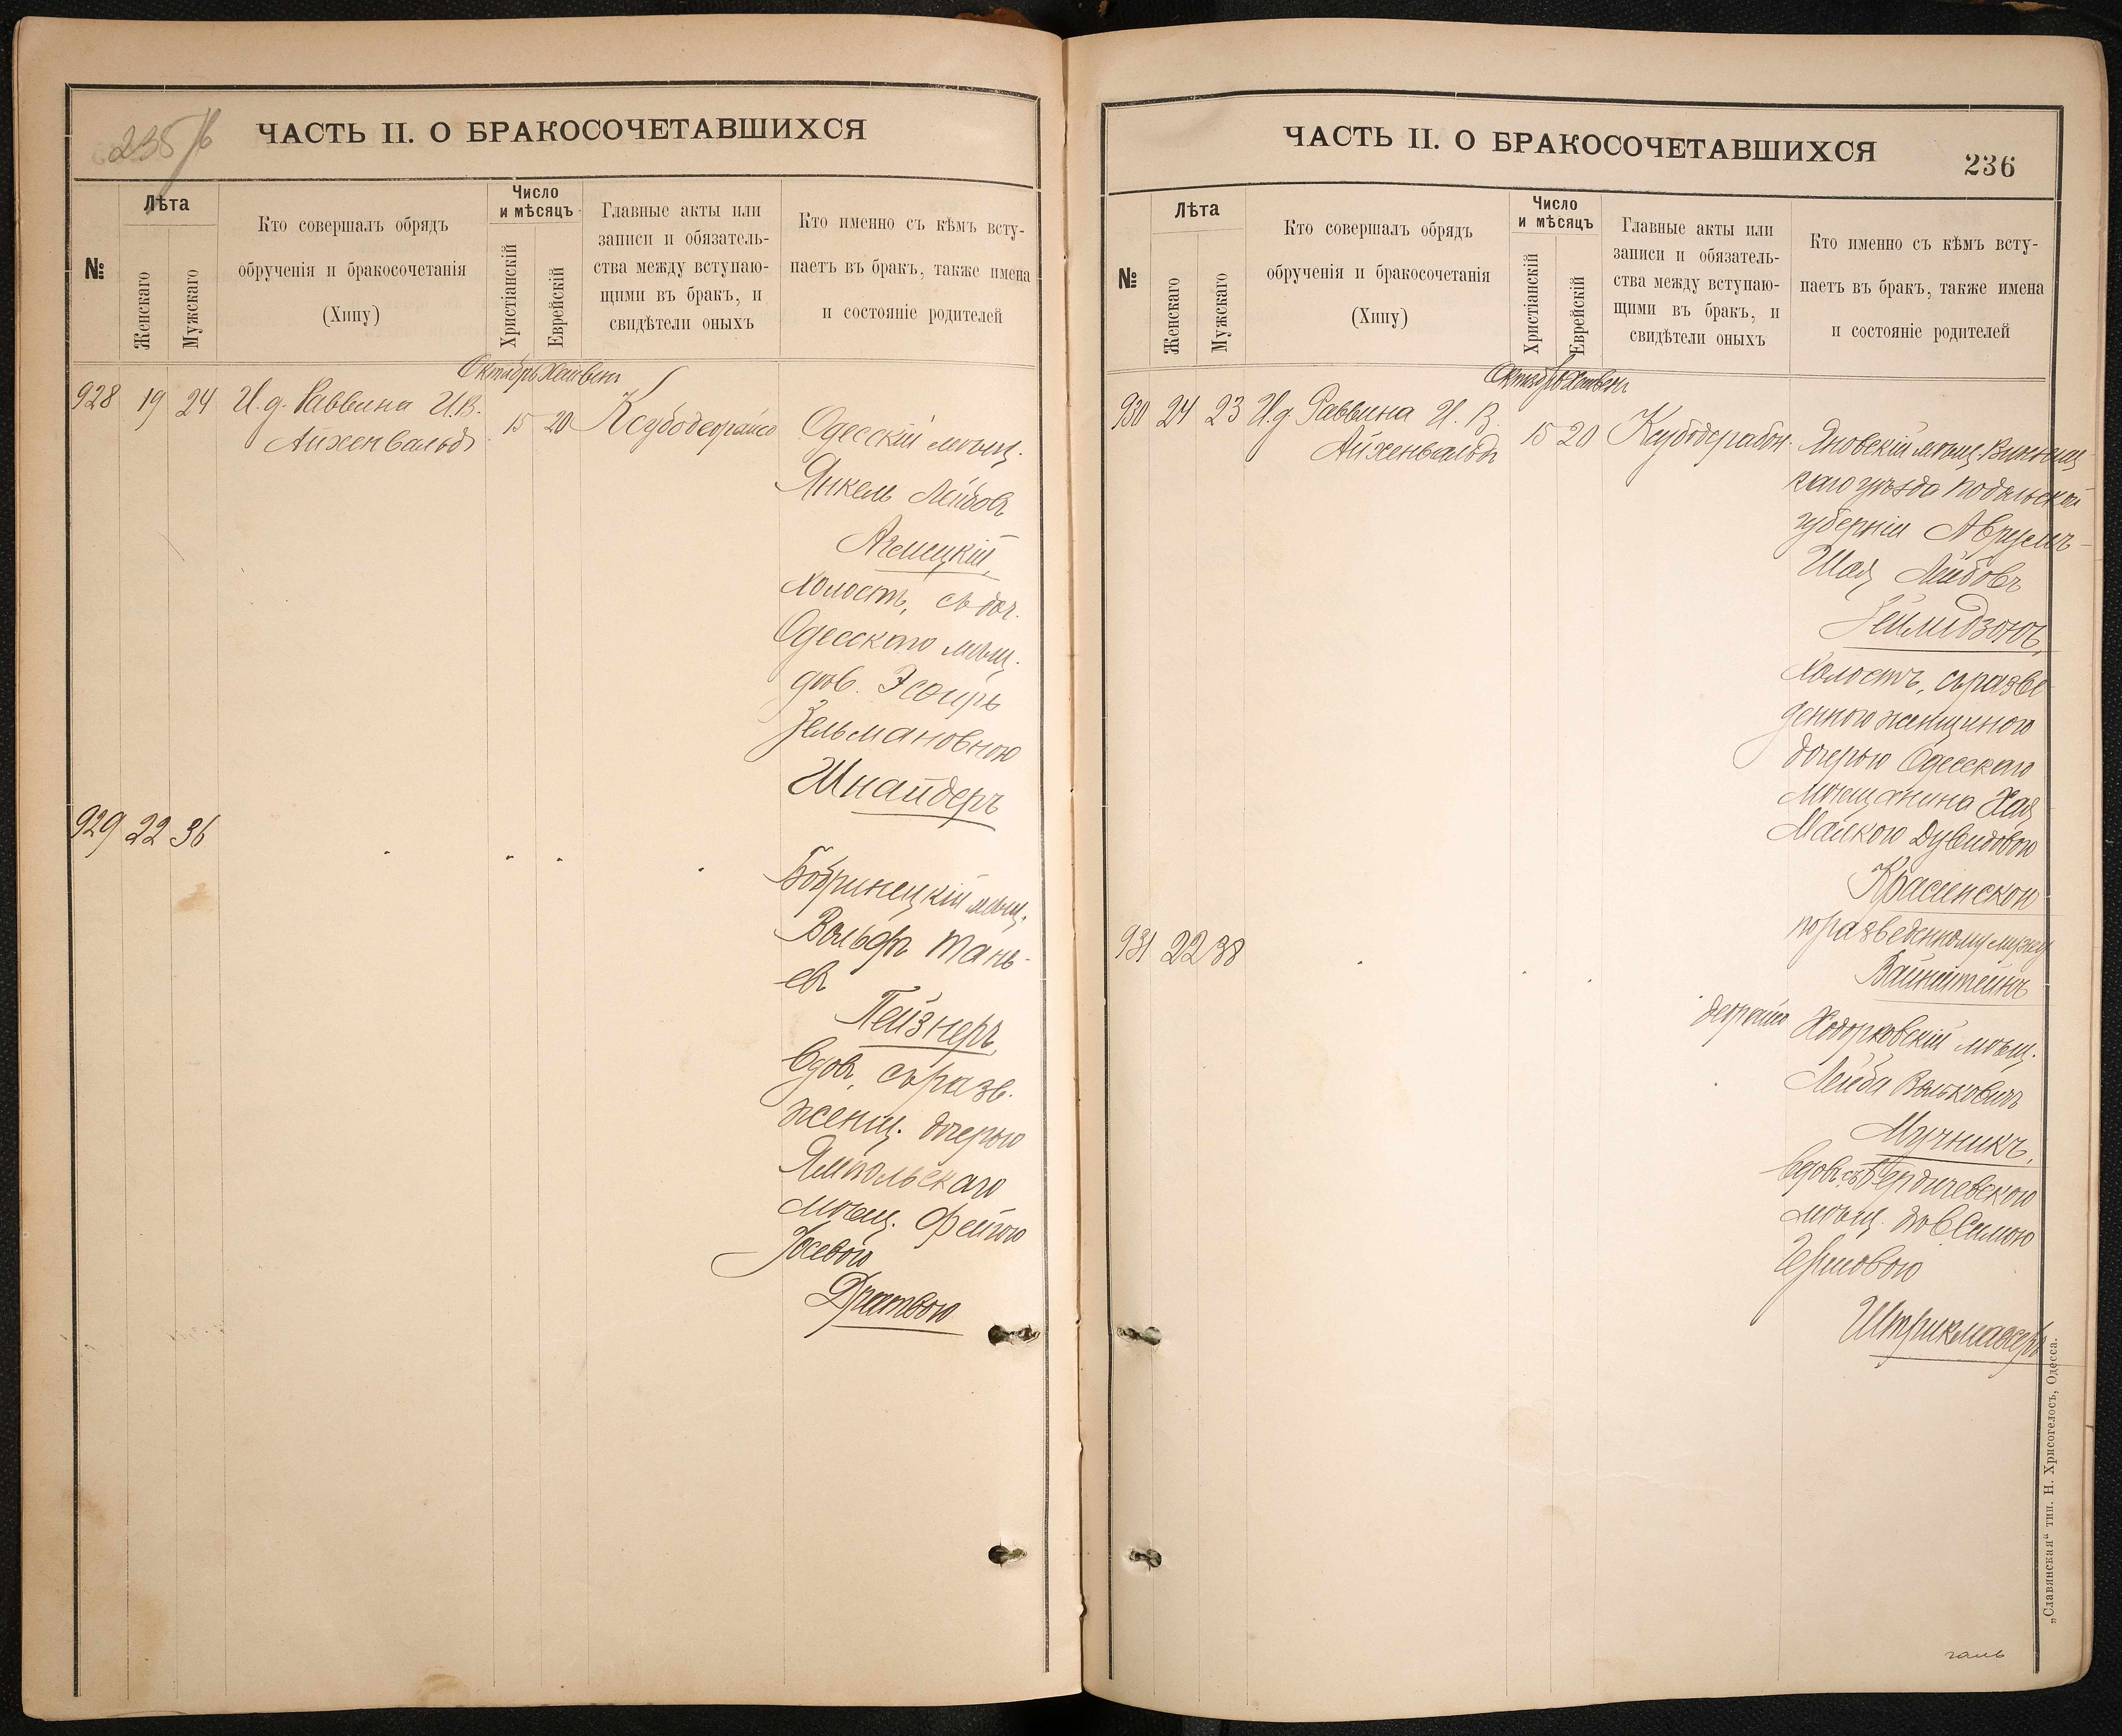 235/б
ЧАСТЬ II. О БРАКОСОЧЕТАВШИХСЯ
№
Лѣта
Женскаго
Мужскаго
Кто совершалъ обрядъ
обрученія и бракосочетанія
(Хипу)
Число
и мѣсяцъ
Христіанскій
Еврейскій
Главные акты или
записи и обязатель-
ства между вступаю-
щими въ бракъ, и
свидѣтели оныхъ
Кто именно съ кѣмъ всту-
паетъ въ бракъ, также имена
и состояніе родителей
Октябрь Хешвен
928 19 24 И.д. Раввина И.В.
Айхенвальдъ
15 20
Одесскій мѣщ.
Янкель Лейбовъ
холостъ, съ доч.
Одесскаго мѣщ.
дѣв. Эсѳирь
Зельмановною
Шнайдеръ
929 22 36
Бобринецкій мѣщ.
Вольфъ Тань-
евъ
Пейзнеръ,
вдов., съ разв.
женщ. дочерью
Ямпольскаго
мѣщ. Фейгою
Іосевою
Дратвою
ЧАСТЬ II. О БРАКОСОЧЕТАВШИХСЯ
236
№
Лѣта
Женскаго
Мужскаго
Кто совершалъ обрядъ
обрученія и бракосочетанія
(Хипу)
Число
и мѣсяцъ
Христіанскій
Еврейскій
Главные акты или
записи и обязатель-
ства между вступаю-
щими въ бракъ, и
свидѣтели оныхъ
Кто именно съ кѣмъ всту-
паетъ въ бракъ, также имена
и состояніе родителей
Октябрь Хешвен
930 24 23 И.д. Раввина И. В.
Айхенвальдъ
15 20
Яновскій мѣщ. Винниц-
каго уѣзда Подольской
губерніи Аврумъ-
Шая Лейбовъ
холостъ, съ разве
денною женщиною
дочерью Одесскаго
мѣщанина Хая
Малкою Дувидовою
Красинскою
по разведенному мужу
Вайнштейнъ
931 22 38
Ходорковскій мѣщ.
Лейба Вольковичъ
Мучникъ,
вдовъ, съ Бердичевскою
мѣщ. дѣв Симою
Гершовою
Штрикмахеръ
„Славянская“ тип. Н. Хрисогелосъ, Одесса.